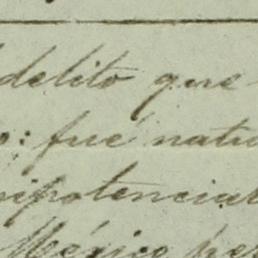 delito que
o: fué natu
nipotenciar
México per